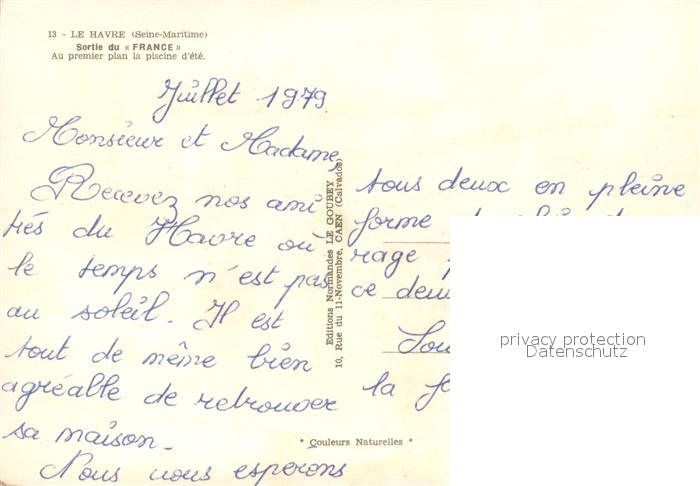 13 - LE HAVRE (Seine-Maritime)
Sortie du « FRANCE »
Au premier plan la piscine d'été.
Juillet 1979
Monsieur et Madame,
Recevez nos ami
tiés du Havre où
le temps n'est pas
au soleil. Il est
tout de même bien
agréable de retrouver
sa maison.
Nous vous espérons
Editions Normandes LE GOUBEY
10, Rue du 11-Novembre, CAEN (Calvados)
tous deux en pleine
forme
rage
ce deu
la
* Couleurs Naturelles *
privacy protection
Datenschutz